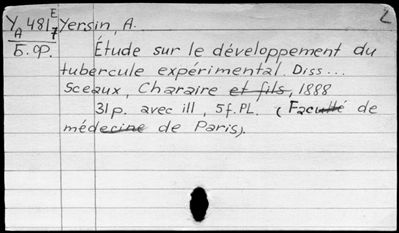 Y 481 E/7 Yersin, A. L
A
Б.ф. Étude sur le développement du
tubercule expérimental. Diss...
Sceaux, Charaire et fils, 1888
31p. avec ill, 5f.PL. (Faculté de
médecine de Paris).